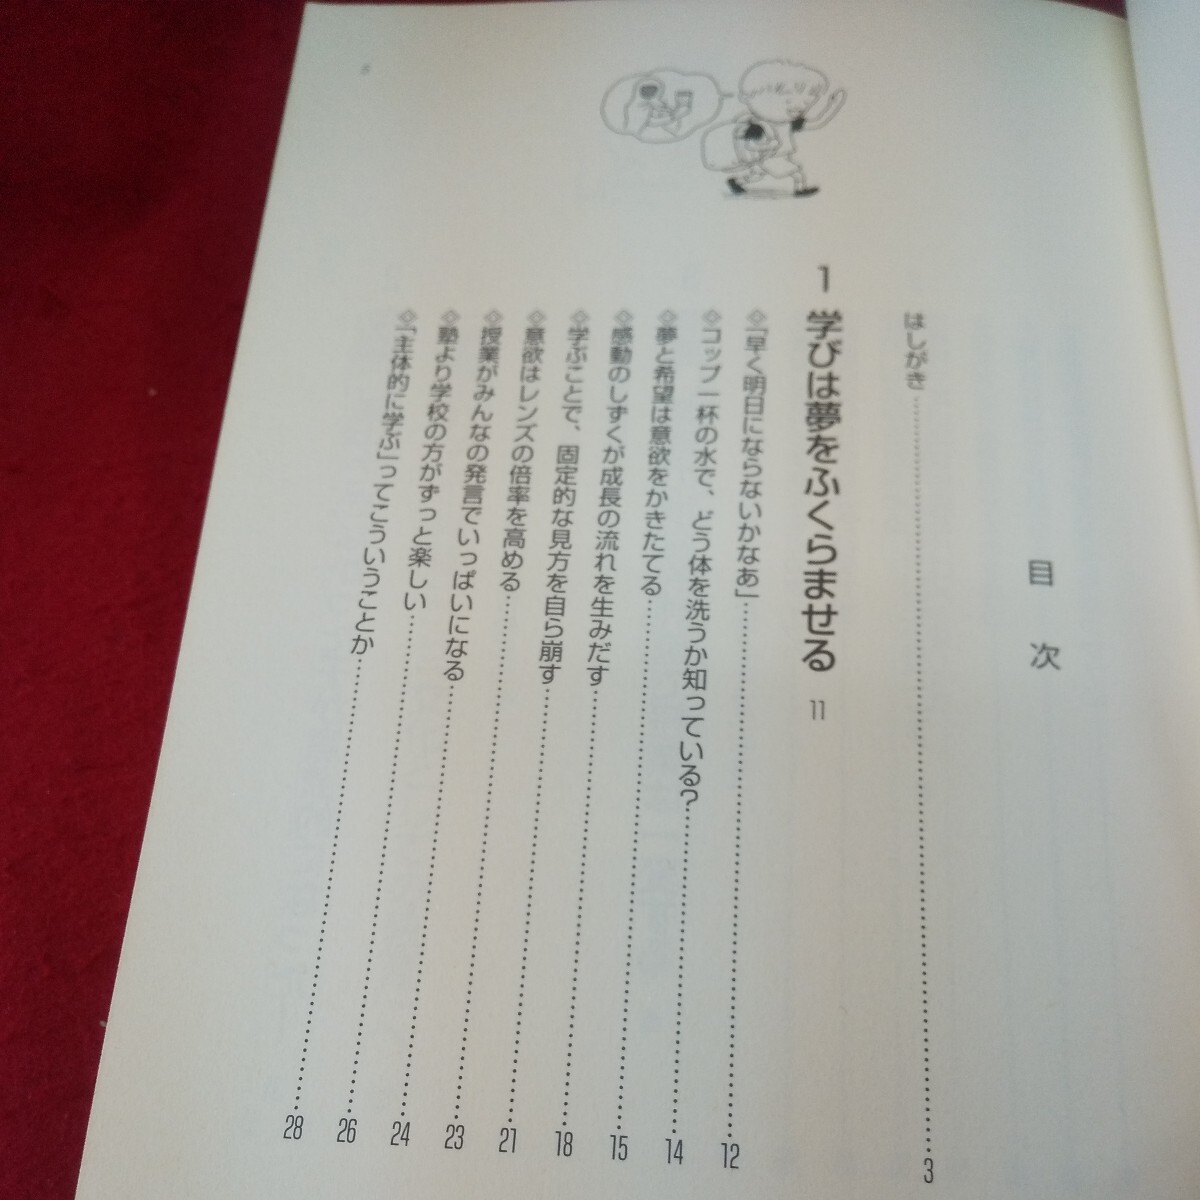 目次
はしがき……3
1 学びは夢をふくらませる 11
◇「早く明日にならないかなあ」……12
◇コップ一杯の水で、どう体を洗うか知っている?……14
◇夢と希望は意欲をかきたてる……15
◇感動のしずくが成長の流れを生みだす……18
◇学ぶことで、固定的な見方を自ら崩す……21
◇意欲はレンズの倍率を高める……23
◇授業がみんなの発言でいっぱいになる……24
◇塾より学校の方がずっと楽しい……26
◇「主体的に学ぶ」ってこういうことか……28